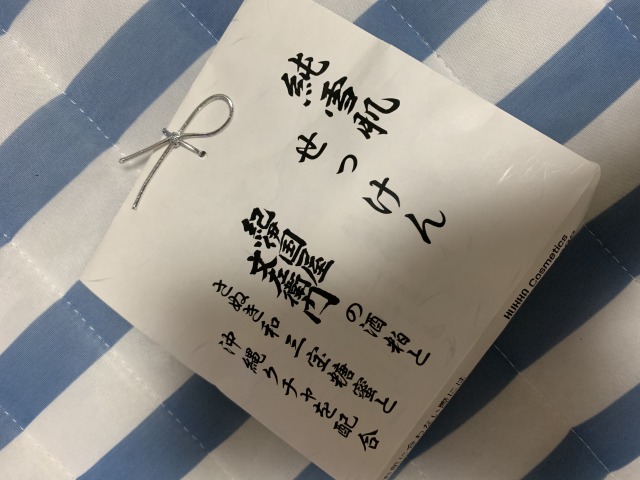 純雪肌
せっけん
紀伊国屋
文左衛門
の酒粕と
さぬき和三宝糖蜜と
沖縄クチャを配合
Cosmetics